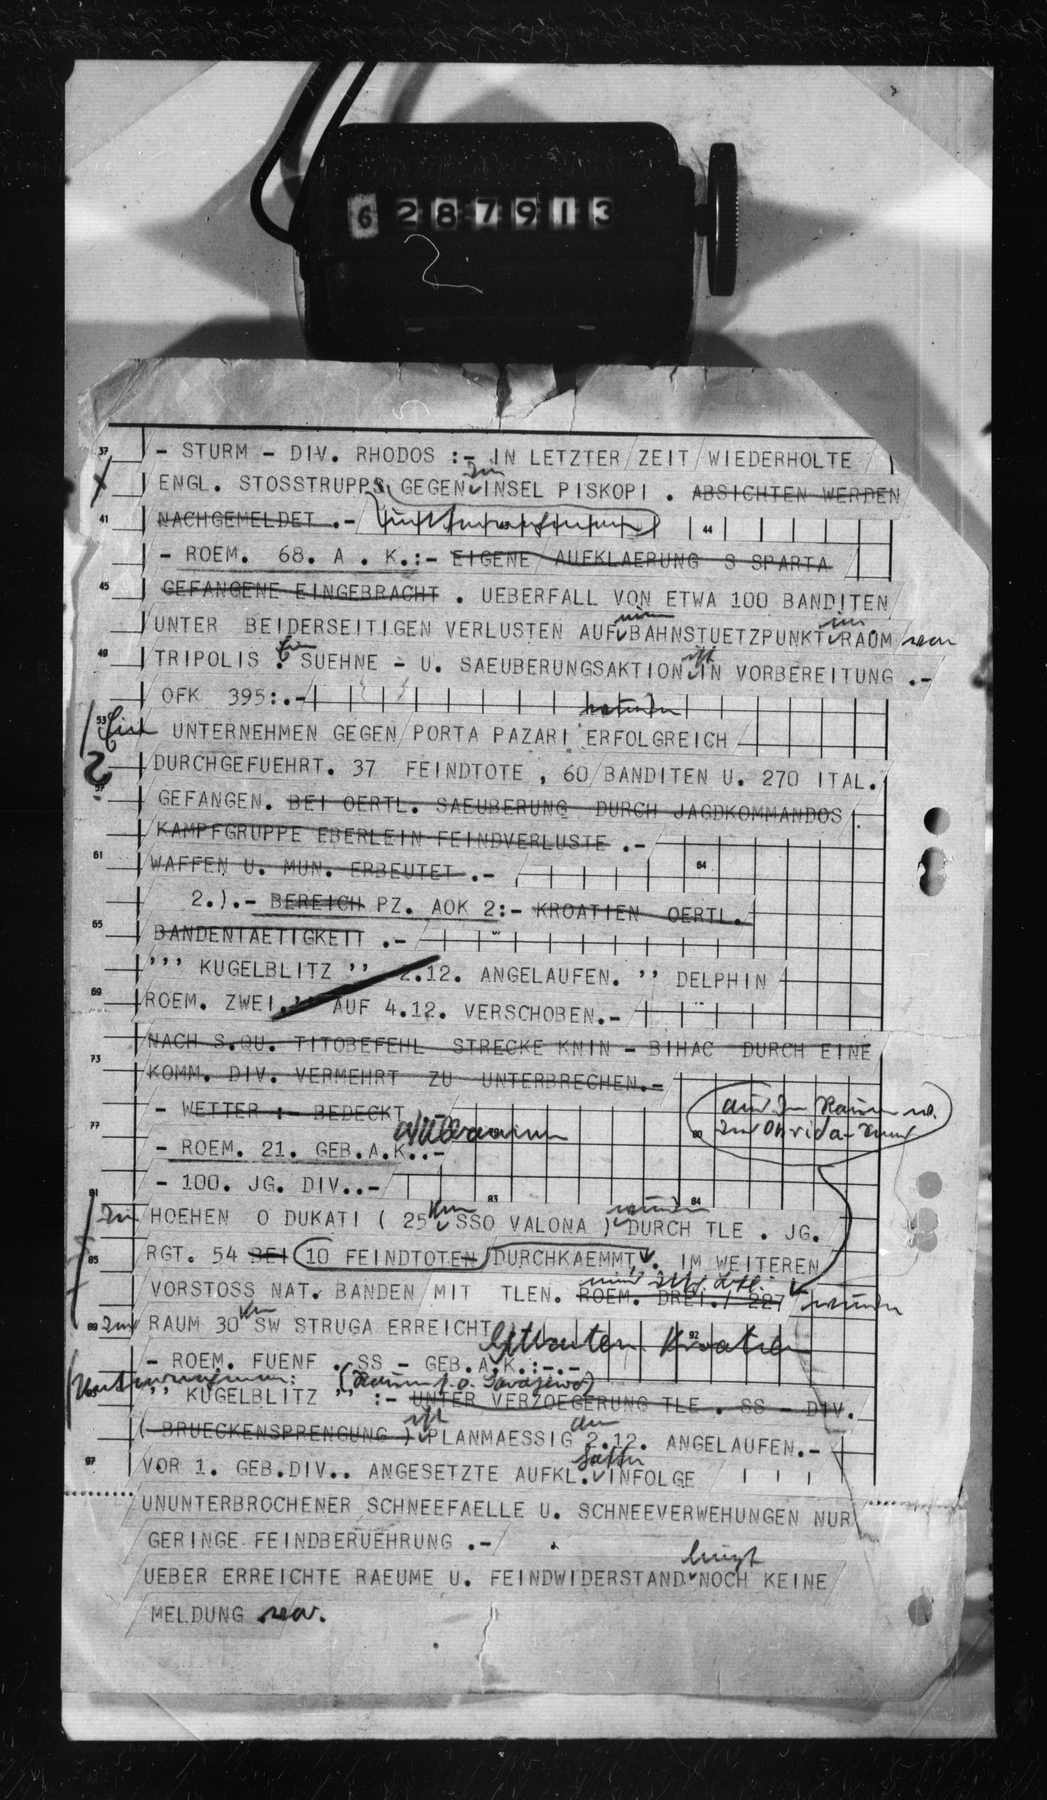 6287913
- STURM - DIV. RHODOS :- IN LETZTER ZEIT WIEDERHOLTE
ENGL. STOSSTRUPPS GEGEN INSEL PISKOPI . ABSICHTEN WERDEN
NACHGEMELDET .-
- ROEM. 68. A . K.:- EIGENE AUFKLAERUNG S SPARTA
GEFANGENE EINGEBRACHT . UEBERFALL VON ETWA 100 BANDITEN
UNTER BEIDERSEITIGEN VERLUSTEN AUF BAHNSTUETZPUNKT im RAUM
TRIPOLIS . SUEHNE - U. SAEUBERUNGSAKTION ist IN VORBEREITUNG .-
OFK 395:.-
UNTERNEHMEN GEGEN PORTA PAZARI ERFOLGREICH
DURCHGEFUEHRT. 37 FEINDTOTE , 60 BANDITEN U. 270 ITAL.
GEFANGEN. BEI OERTL. SAEUBERUNG DURCH JAGDKOMMANDOS
KAMPFGRUPPE EBERLEIN FEINDVERLUSTE .-
WAFFEN U. MUN. ERBEUTET .-
2.).- BEREICH PZ. AOK 2:- KROATIEN OERTL.
BANDENTAETIGKEIT .-
''' KUGELBLITZ '' 2.12. ANGELAUFEN. '' DELPHIN
ROEM. ZWEI.'' AUF 4.12. VERSCHOBEN.-
NACH S.QU. TITOBEFEHL STRECKE KNIN - BIHAC DURCH EINE
KOMM. DIV. VERMEHRT ZU UNTERBRECHEN.-
- WETTER :- BEDECKT
- ROEM. 21. GEB.A.K..- Albanien
- 100. JG. DIV..-
HOEHEN O DUKATI ( 25 km SSO VALONA ) wurden DURCH TLE . JG.
RGT. 54 BEI 10 FEINDTOTEN DURCHKAEMMT . IM WEITEREN
VORSTOSS NAT. BANDEN MIT TLEN. ROEM. DREI./ 227 wurden
RAUM 30 km SW STRUGA ERREICHT
- ROEM. FUENF . SS - GEB.A.K.:-.- Kroatien
Unternehmen:
'' KUGELBLITZ '' :- UNTER VERZOEGERUNG TLE . SS - DIV.
( BRUECKENSPRENGUNG ) ist PLANMAESSIG am 2.12. ANGELAUFEN.-
VOR 1. GEB.DIV.. ANGESETZTE AUFKL. hatte INFOLGE
UNUNTERBROCHENER SCHNEEFAELLE U. SCHNEEVERWEHUNGEN NUR
GERINGE FEINDBERUEHRUNG .-
UEBER ERREICHTE RAEUME U. FEINDWIDERSTAND liegt NOCH KEINE
MELDUNG vor.